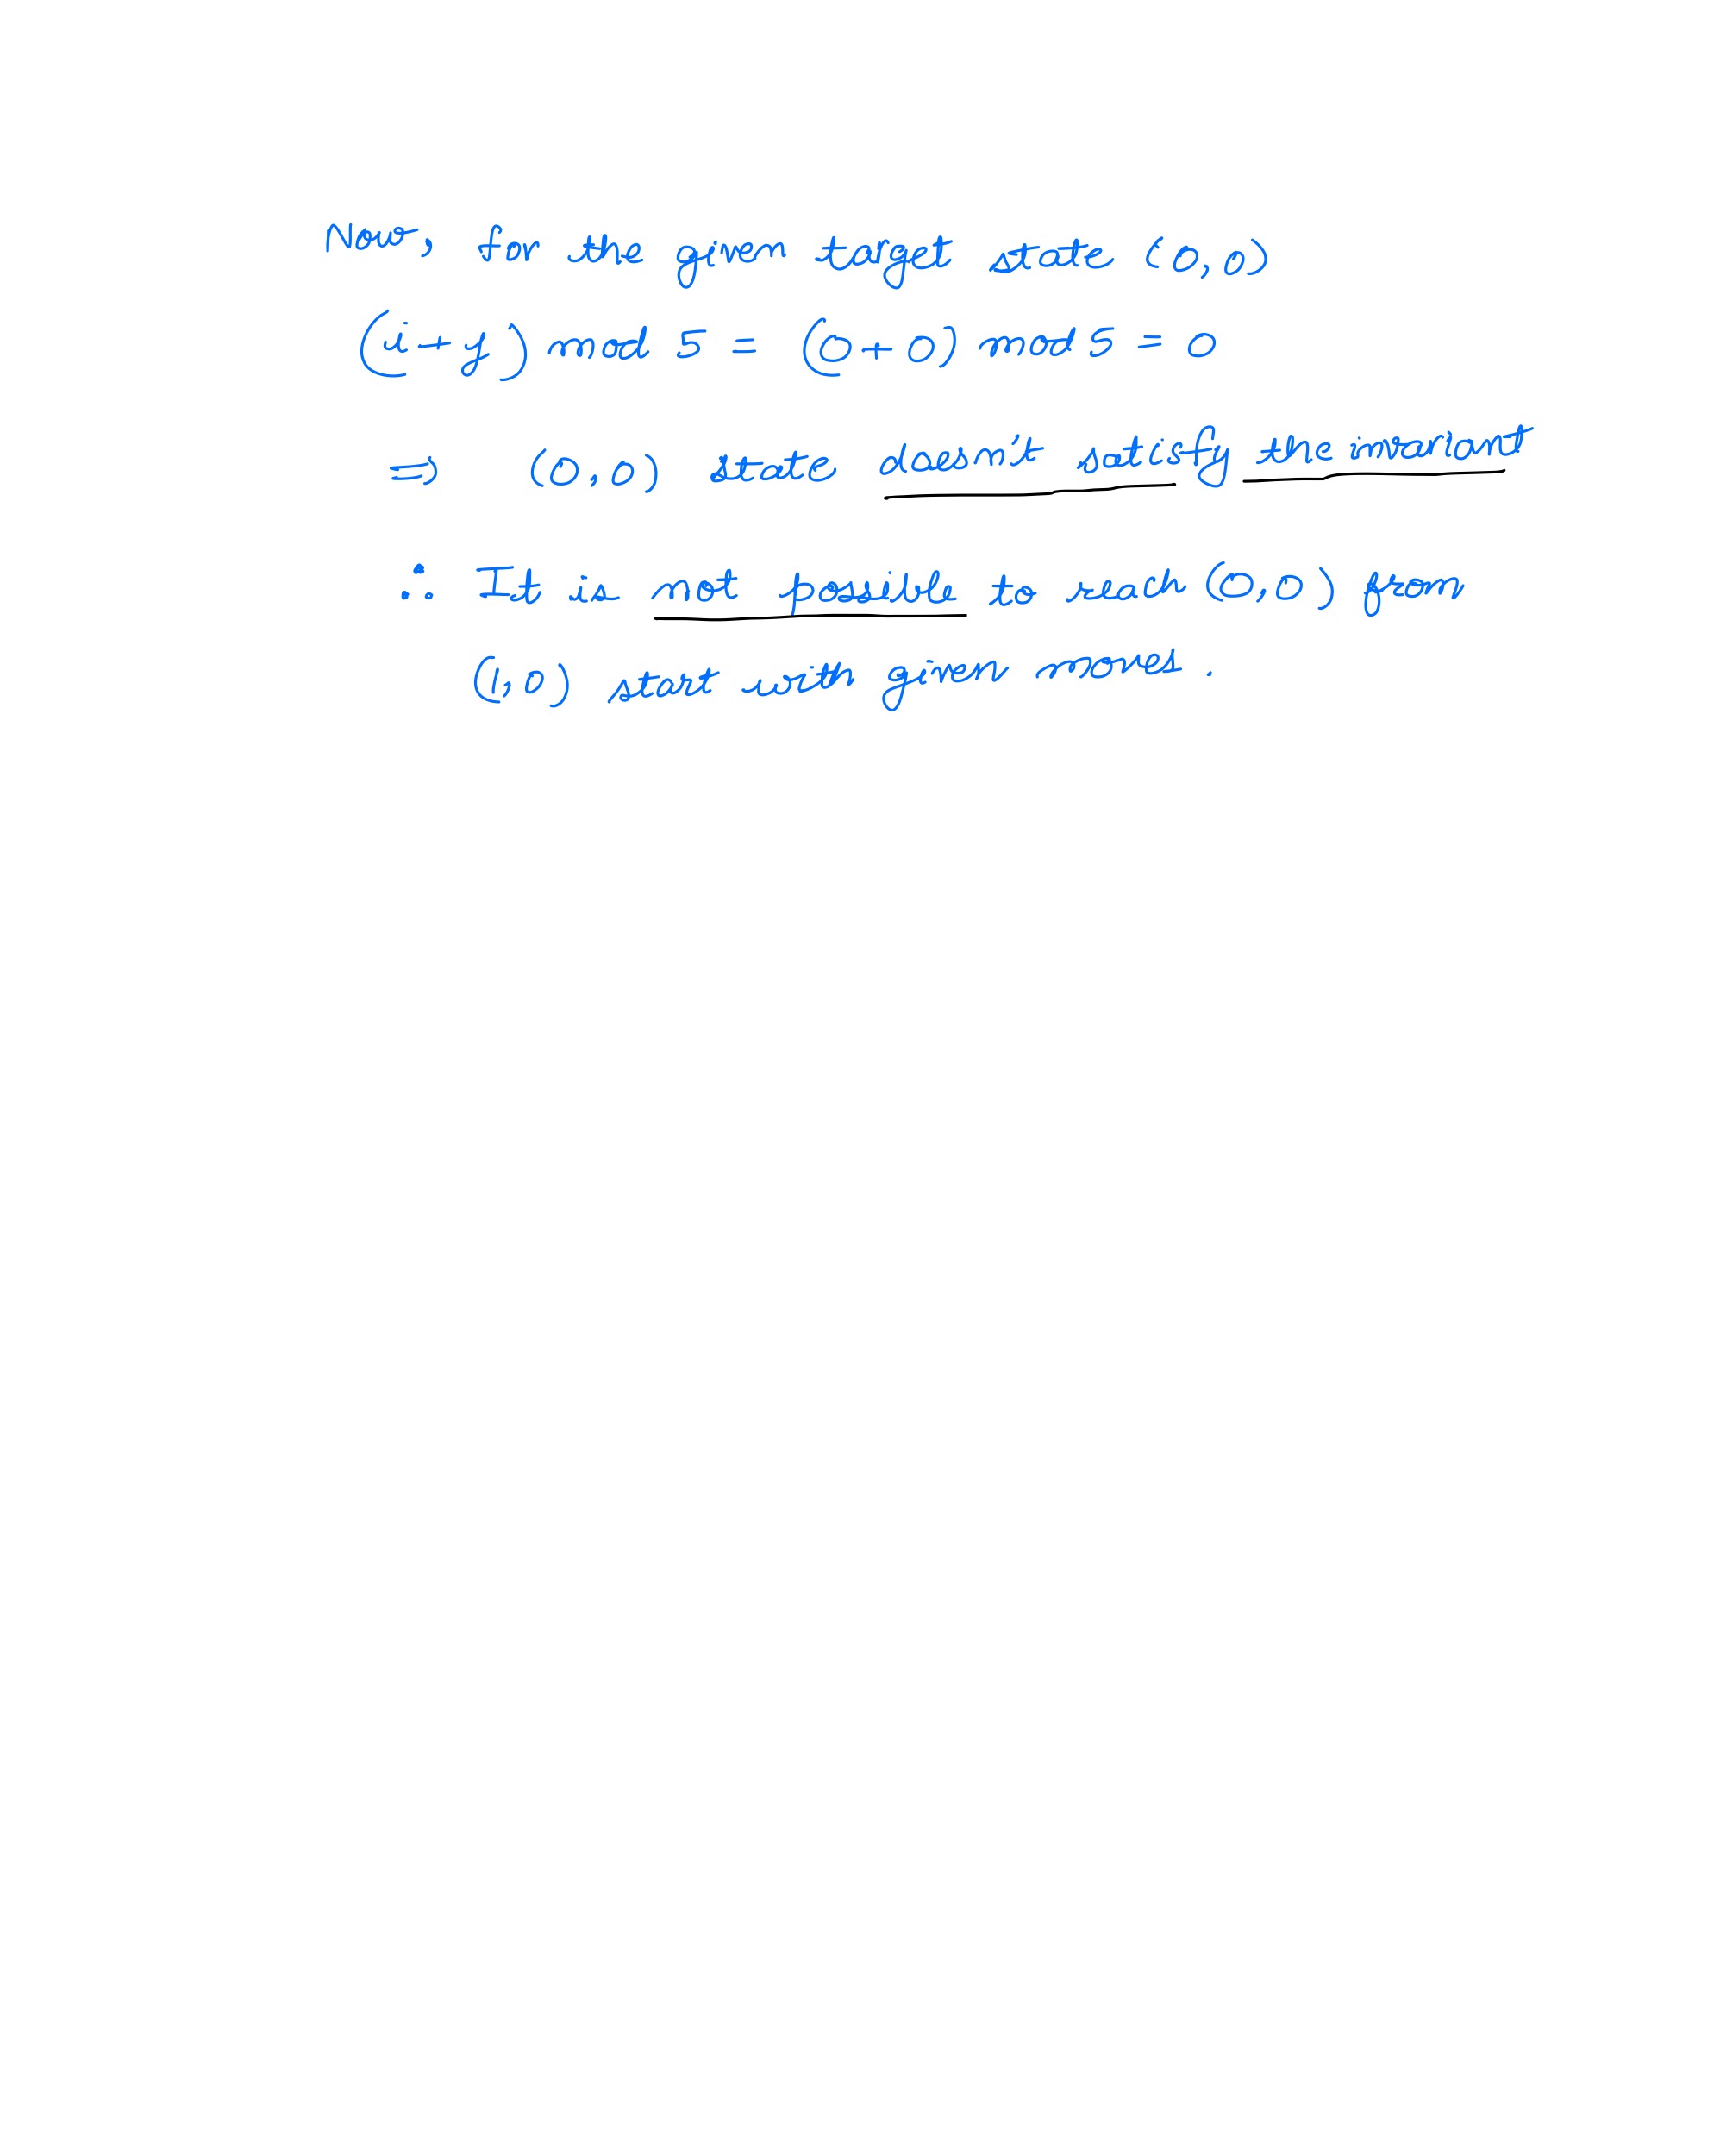 Now, for the given target state (0,0)
(i+y) mod 5 = (0+0) mod 5 = 0
⇒ (0,0) state doesn't satisfy the invariant
∴ It is not possible to reach (0,0) from
(1,0) start with given moves.